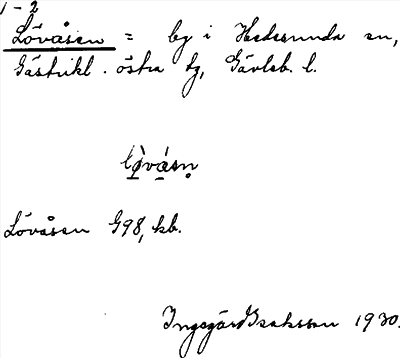 1-2
Lövåsen = by i Hedesunda sn,
Gästrikl. östra tg, Gävleb. l.
Lövåsen G98, kb.
Ingegärd Isaksson 1930.